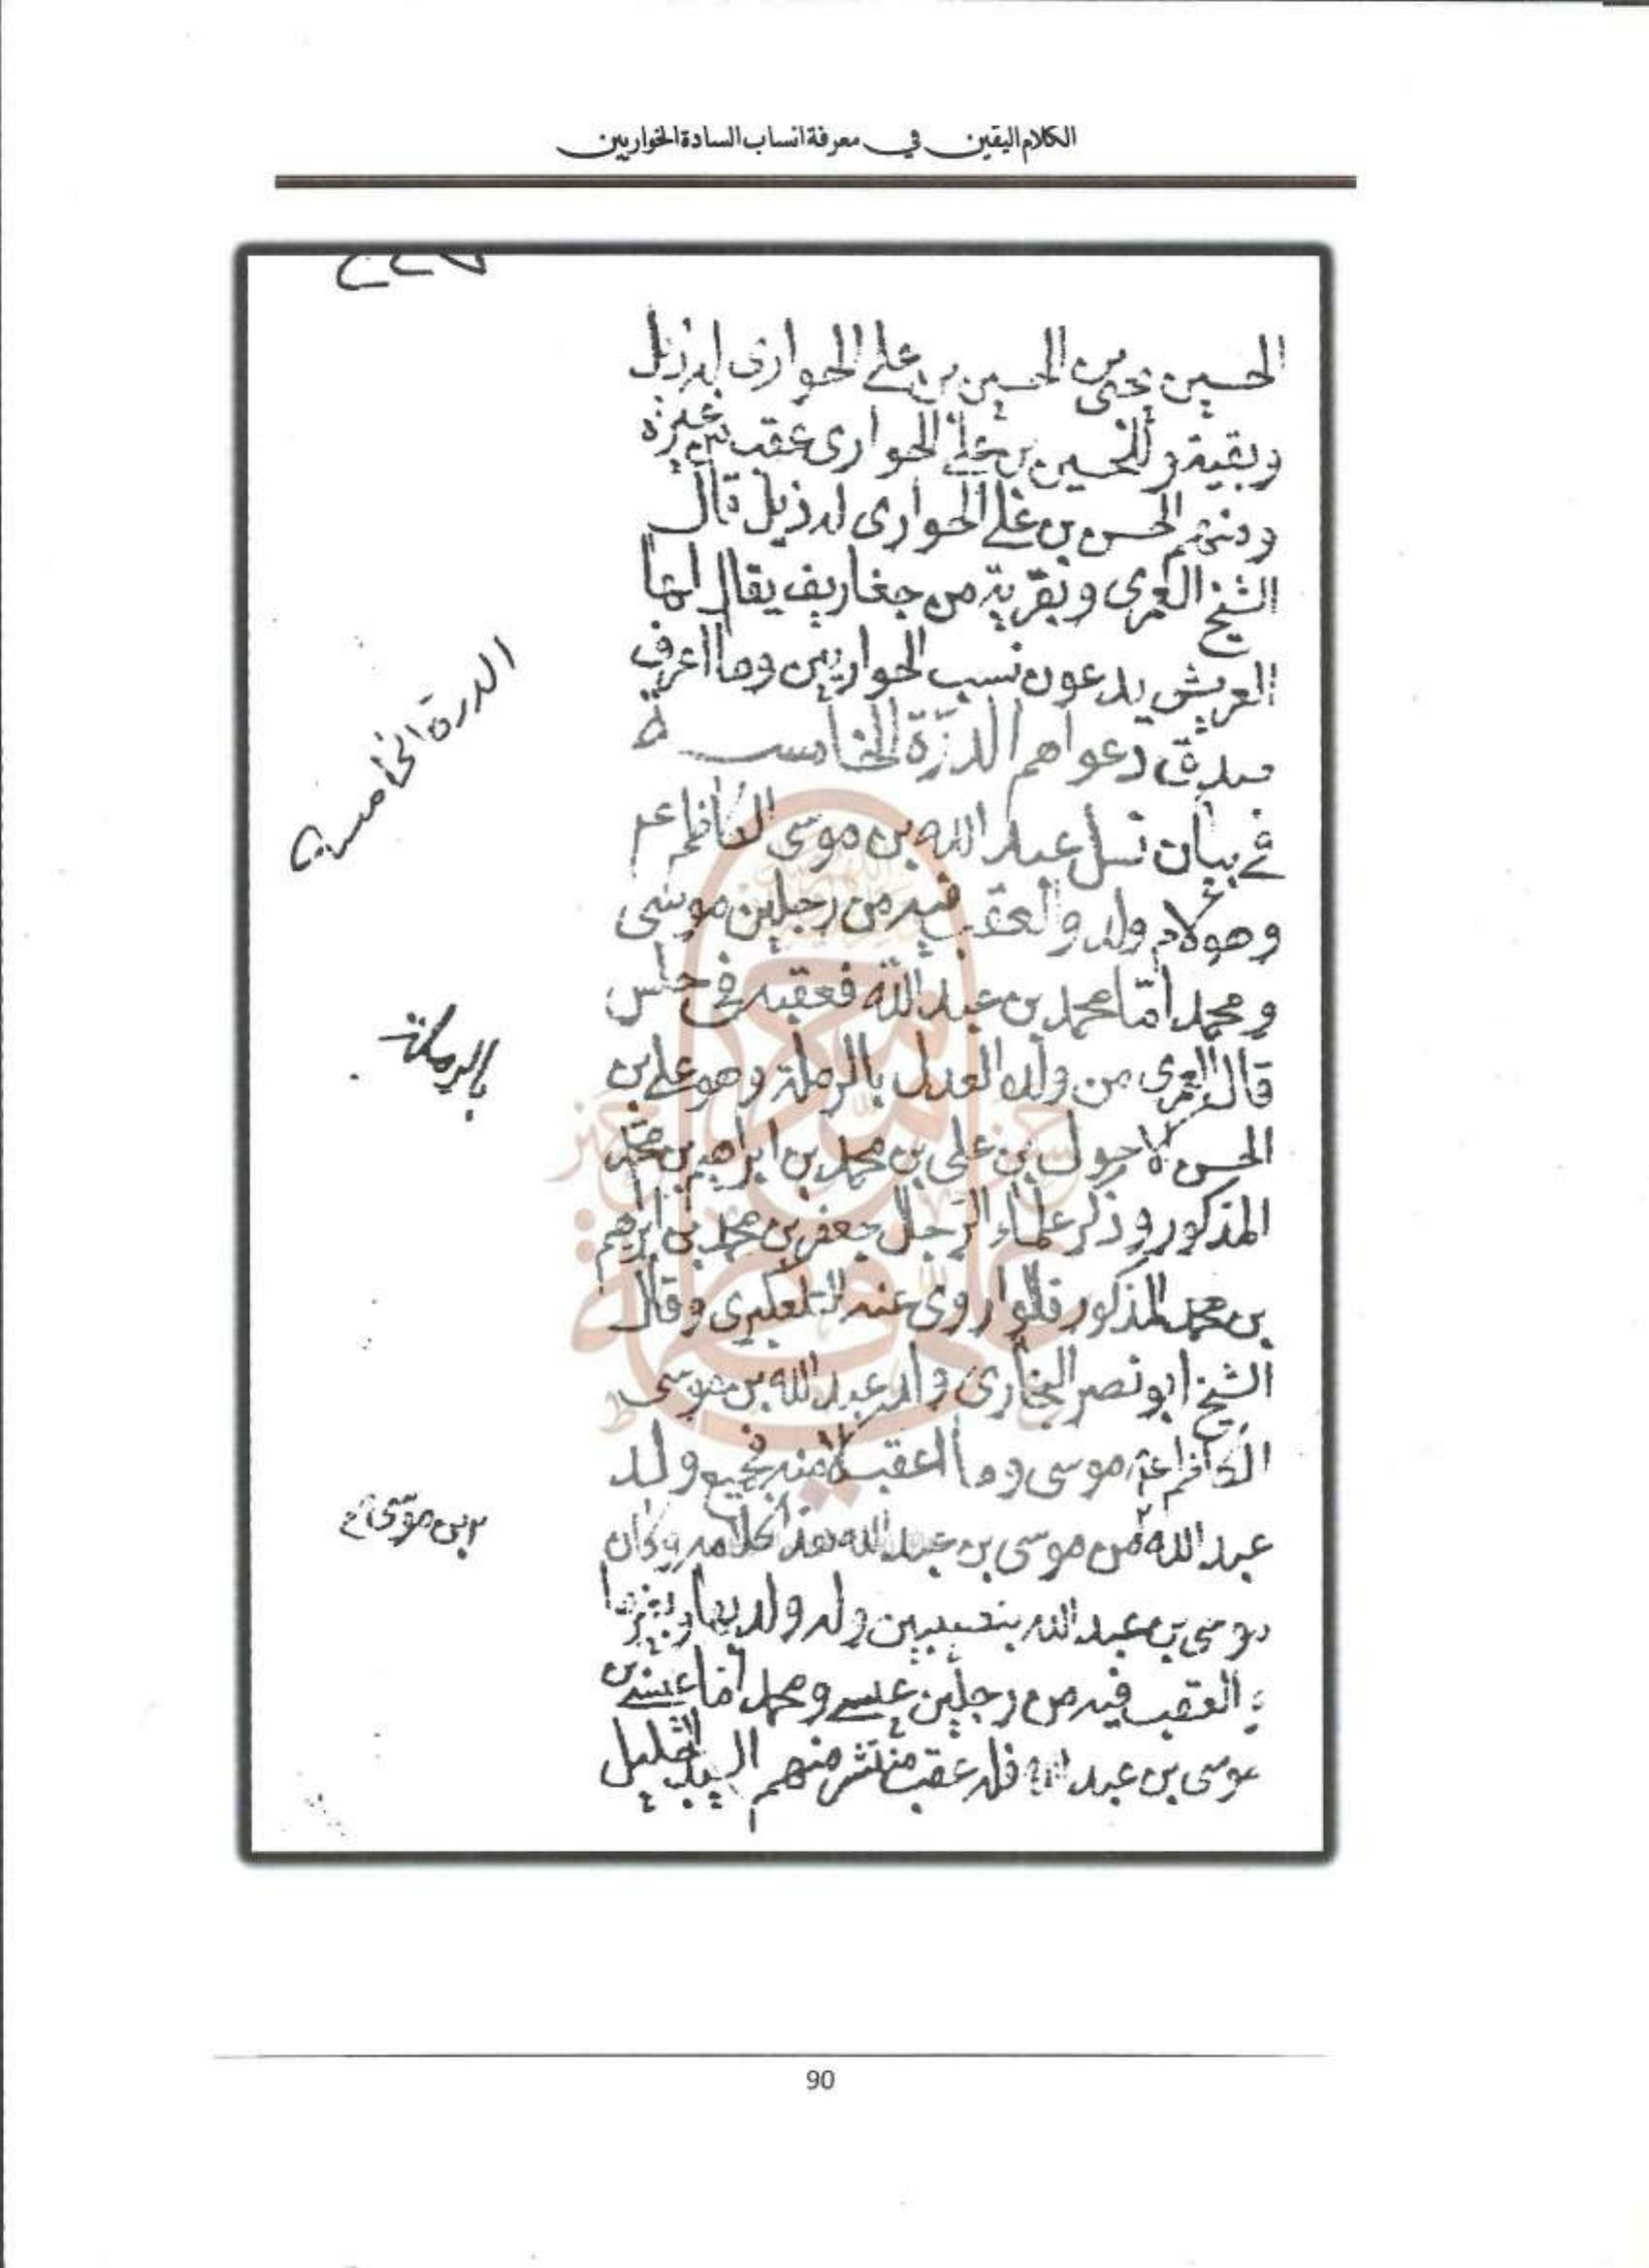 الكلام اليقين في معرفة انساب السادة الخواريين
الحسين يحيى بن الحسين بن على الحوارى له ذيل
وبقية وللحسين بن على الحوارى عقب من غيره
ومنهم الحسن بن على الحوارى له ذيل قال
الشيخ العمرى وبقرية من جغاريف يقال لها
العريش يدعون نسب الحواريين وما اعرف
صدق دعواهم الدرّة الخامسة
في بيان نسل عبد الله بن موسى الكاظم عم
وهو لام ولد والعقب فيه من رجلين موسى
ومحمد امّا محمد بن عبد الله فعقبه في
قال العمرى من ولده العدل بالرملة وهو على بن
الحسن الاحول بن على بن محمد بن ابراهيم بن محمد
المذكور وذكر علماء الرجال جعفر بن محمد بن ابرهيم
بن محمد المذكور قالوا روى عنه التلعكبرى وقال
الشيخ ابو نصر البخارى ولد عبد الله بن موسى
الكاظم عم موسى وما اعقب الا منه فجميع ولد
عبد الله من موسى بن عبد الله هذا كلامه وكان
موسى بن عبد الله بنصيبين وله ولد بها وبغيرها
و العقب فيه من رجلين عيسى ومحمد اما عيسى بن
موسى بن عبد الله فله عقب منتشر منهم السيد الجليل
الدرة الخامسة
بالرملة
٢ بن موسى ع
90